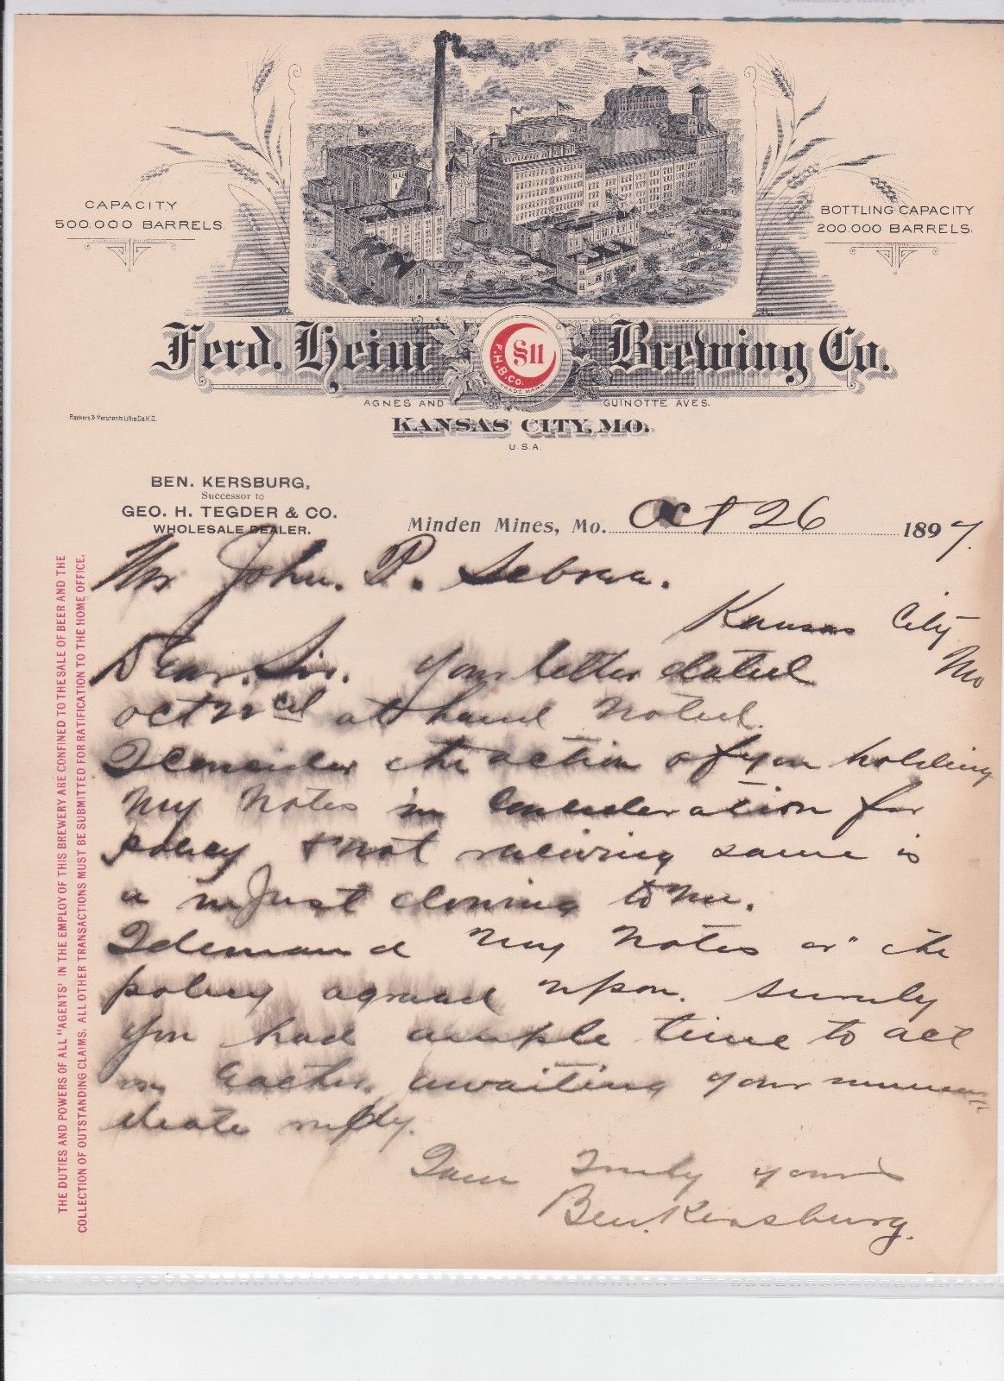 CAPACITY
500.000 BARRELS.
BOTTLING CAPACITY
200.000 BARRELS.
Ferd. Heim Brewing Co.
F.H.B.Co.
TRADE MARK
AGNES AND GUINOTTE AVES.
KANSAS CITY, MO.
U.S.A.
BEN. KERSBURG,
Successor to
GEO. H. TEGDER & CO.
WHOLESALE DEALER.
Minden Mines, Mo. Oct 26 1897.
Mr John. P.
Kansas City
Mo
Dear. Sir. Your letter dated
Oct 22nd at hand Noted.
I consider the action of you holding
My Notes in consideration for
policy & not receiving same is
a unjust to me.
I demand My Notes or the
policy agreed upon. Surely
you had ample time to act
on awaiting your imme
diate reply.
I am Truly yours
Ben. Kersburg.
THE DUTIES AND POWERS OF ALL "AGENTS" IN THE EMPLOY OF THIS BREWERY ARE CONFINED TO THE SALE OF BEER AND THE
COLLECTION OF OUTSTANDING CLAIMS. ALL OTHER TRANSACTIONS MUST BE SUBMITTED FOR RATIFICATION TO THE HOME OFFICE.